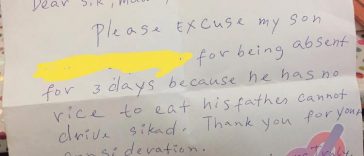 Dear Sir, Madam
Please Excuse my son
for being absent
for 3 days because he has no
rice to eat his father cannot
drive sikad. Thank you for your
consideration.